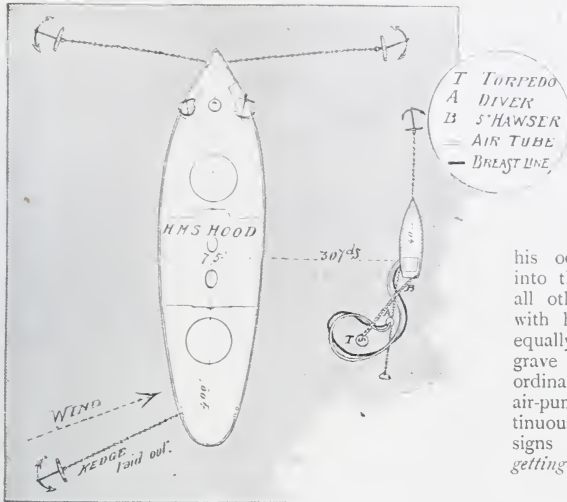 T TORPEDO
A DIVER
B 5" HAWSER
= AIR TUBE
— BREAST LINE,
HMS HOOD
7
30 yds
B
T
WIND
KEDGE laid out.
his oc
into th
all oth
with h
equally
grave
ordina
air-pun
tinuous
signs
getting